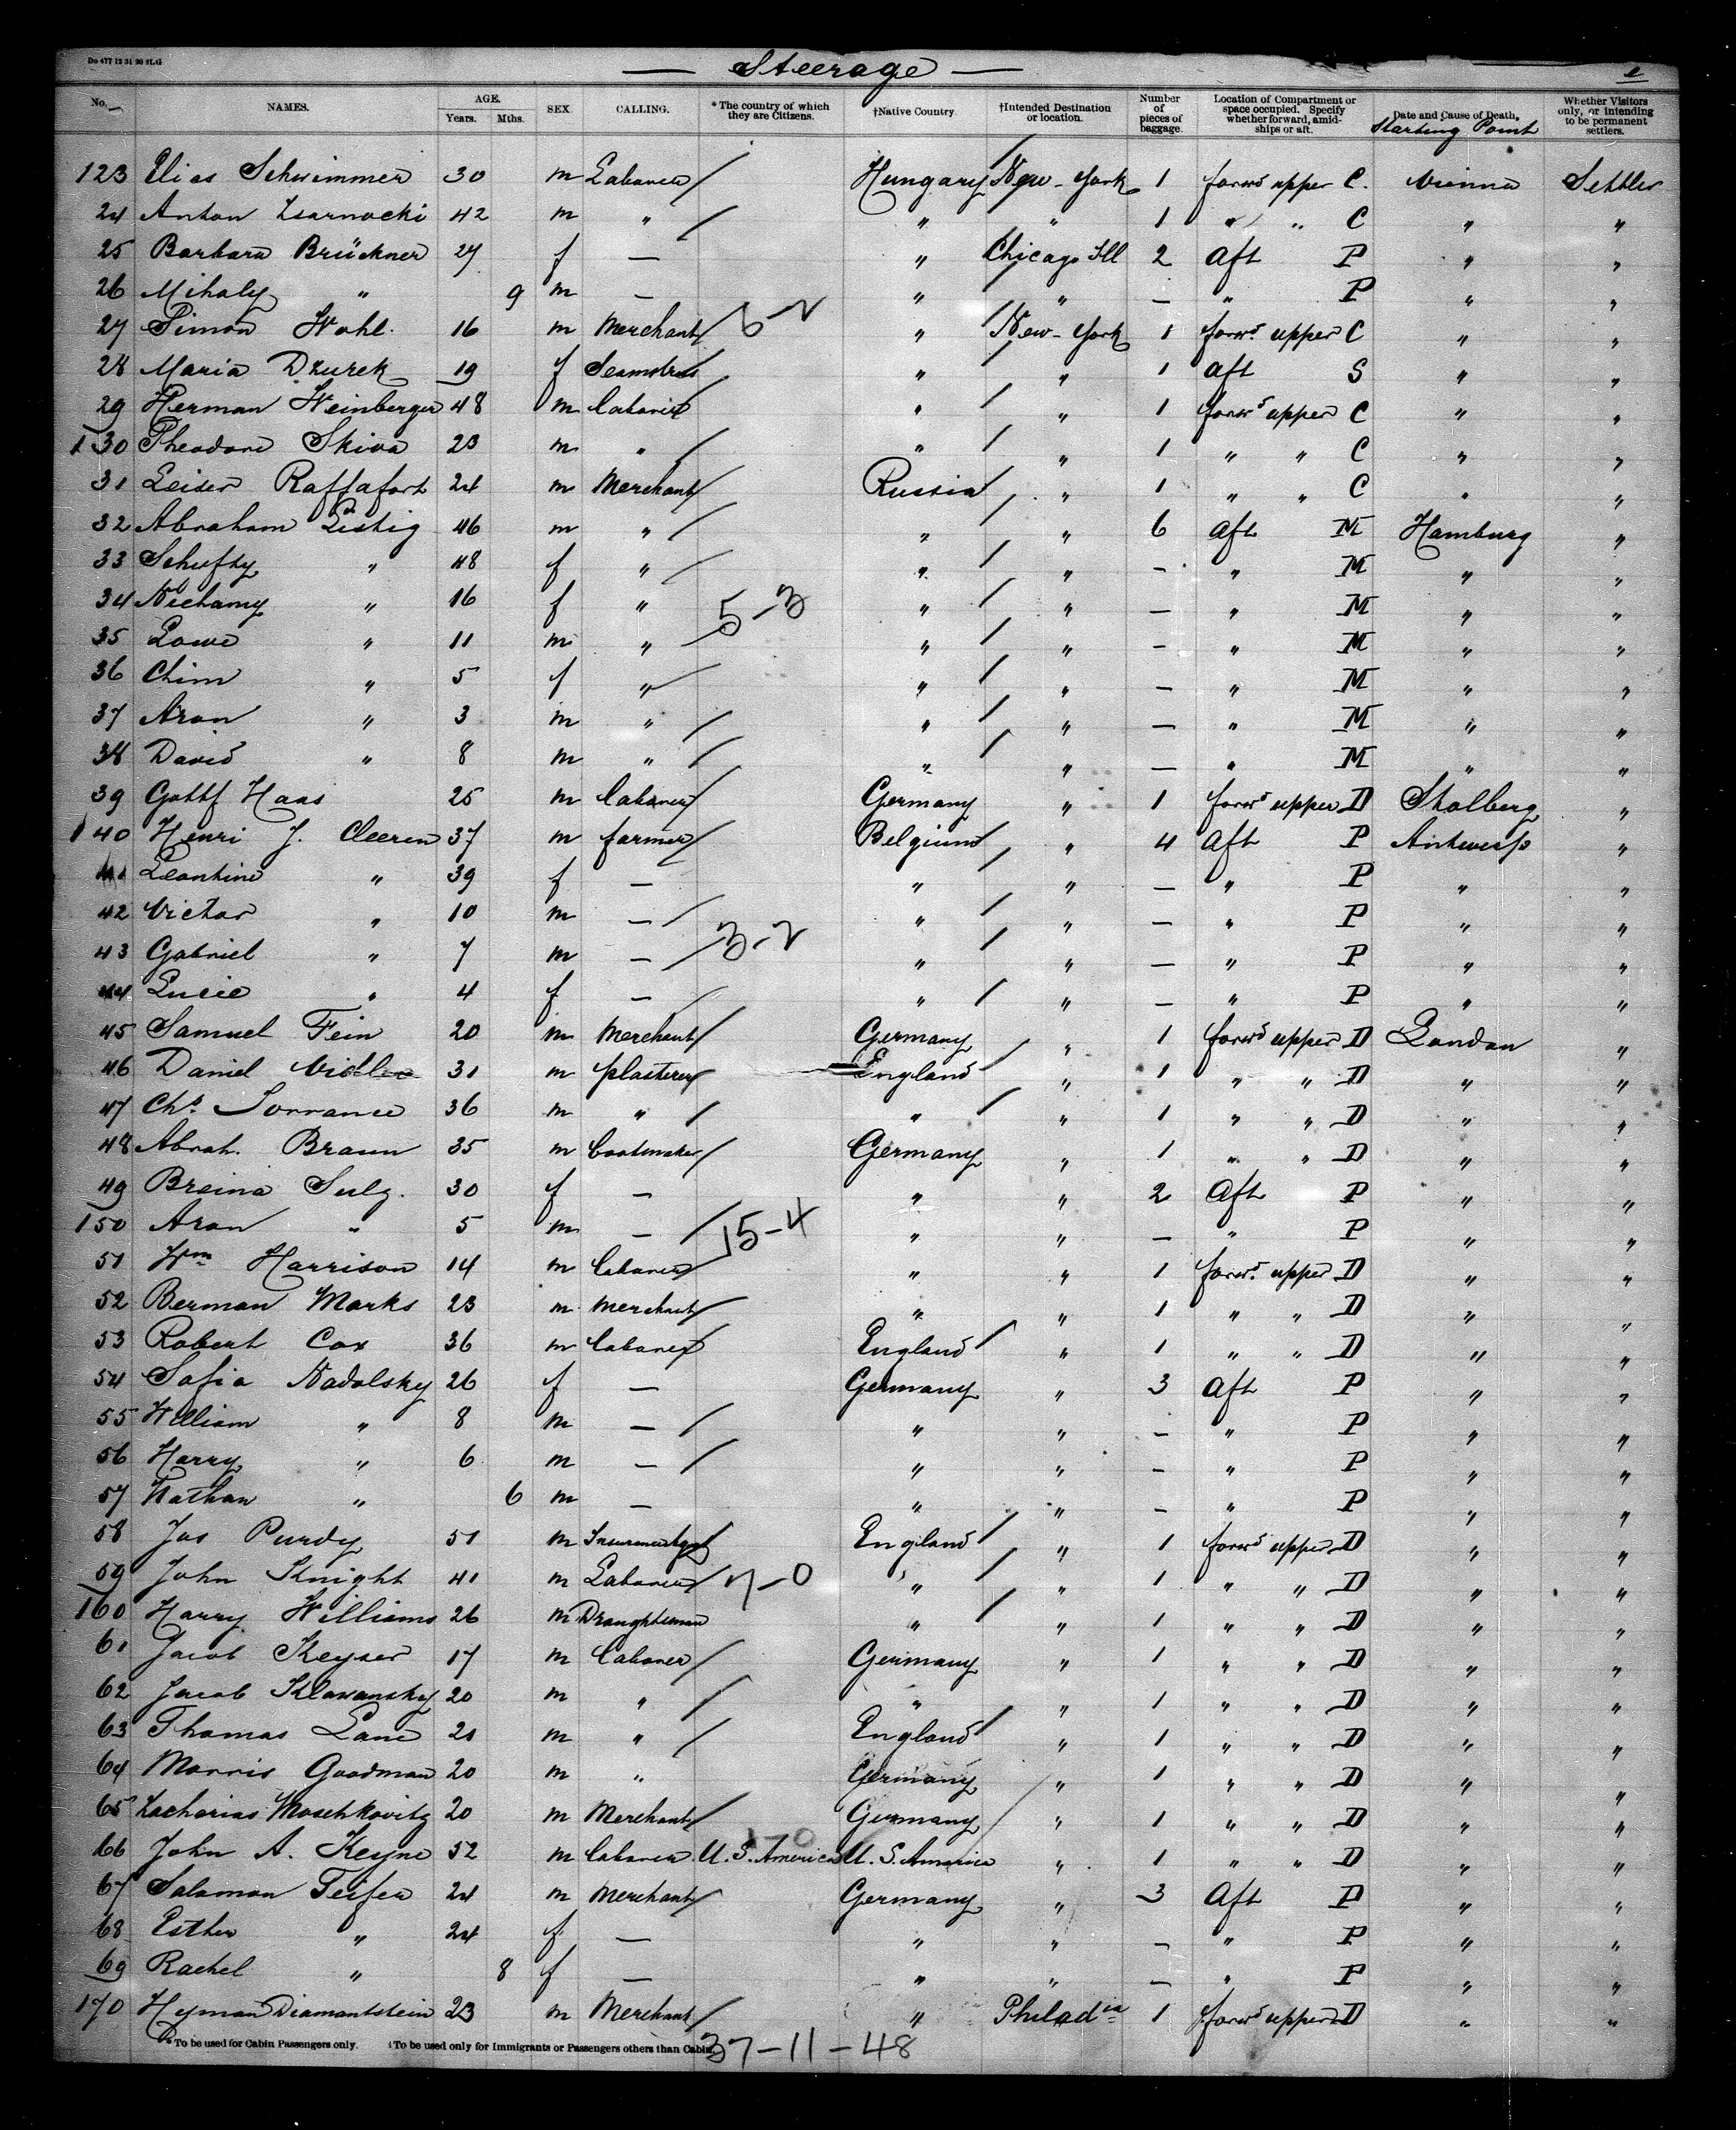 Do 477 12 31 90 2LG
— Steerage —
No. NAMES. AGE. Years. Mths. SEX. CALLING. *The country of which they are Citizens. †Native Country. †Intended Destination or location. Number of pieces of baggage. Location of Compartment or space occupied. Specify whether forward, amidships or aft. Date and Cause of Death. Starting Point Whether Visitors only, or intending to be permanent settlers.
123 Elias Schwimmer 30 m Laborer / Hungary / New-York 1 forwd upper C. Vienna Settler
24 Anton Zsarnocki 42 m " / " " 1 " " C " "
25 Barbara Brückner 27 f — " Chicago Ill 2 Aft P " "
26 Mihaly " 9 m — " / " — " P " "
27 Simon Wohl. 16 m Merchant / 6-2 " / New-York 1 forwd upper C " "
28 Maria Dzurek 19 f Seamstress " / " 1 Aft S " "
29 Herman Weinberger 48 m Laborer " / " 1 forwd upper C " "
130 Theodore Skiva 23 m " / " / " 1 " " C " "
31 Leiser Raffafort 24 m Merchant / Russia / " 1 " " C " "
32 Abraham Listig 46 m " / " / " 6 Aft M Hamburg "
33 Schufty " 48 f " / " / " — " M " "
34 Nechamy " 16 f " 5-3 " / " — " M " "
35 Lowe " 11 m " / " / " — " M " "
36 Chim " 5 f " / " / " — " M " "
37 Aron " 3 m " / " / " — " M " "
38 David " 8 m " / " / " — " M " "
39 Gottf Haas 25 m Laborer / Germany " 1 forwd upper D Stolberg "
140 Henri J. Cleeren 37 m farmer / Belgium / " 4 Aft P Antwerp "
41 Leontine " 39 f — " / " — " P " "
42 Victor " 10 m — / " / " — " P " "
43 Gabriel " 7 m — / 3-2 " / " — " P " "
44 Lucie " 4 f — / " / " — " P " "
45 Samuel Fein 20 m Merchant / Germany " 1 forwd upper D London "
46 Daniel 31 m plasterer / England / " 1 " " D " "
47 Chs. Sorrance 36 m " / " / " 1 " " D " "
48 Abrah. Braun 35 m Bootmaker / Germany " 1 " " D " "
49 Breina Sulz. 30 f — " " 2 Aft P " "
150 Aron " 5 m — / 15-4 " " — " P " "
51 Wm Harrison 14 m Laborer / " " 1 forwd upper D " "
52 Berman Marks 23 m Merchant / " " 1 " " D " "
53 Robert Cox 36 m Laborer / England / " 1 " " D " "
54 Sofia Nadolsky 26 f — Germany " 3 Aft P " "
55 William " 8 m — / " " — " P " "
56 Harry " 6 m — / " " — " P " "
57 Nathan " 6 m — " " — " P " "
58 Jas Purdy 51 m Insurance Agent England / " 1 forwd upper D " "
59 John Knight 41 m Laborer / 7-0 " / " 1 " " D " "
160 Harry Williams 26 m Draughtsman " / " 1 " " D " "
61 Jacob Keyser 17 m Laborer / Germany " 1 " " D " "
62 Jacob Klawansky 20 m " / " " 1 " " D " "
63 Thomas Lane 21 m " / England / " 1 " " D " "
64 Morris Goodman 20 m " Germany " 1 " " D " "
65 Zacharias Moschkovitz 20 m Merchant / Germany / " 1 " " D " "
66 John A. Keyne 52 m Laborer U. S. America U. S. America " 1 " " D " "
67 Salaman Teifer 24 m Merchant / Germany " 3 Aft P " "
68 Esther " 24 f — " " — " P " "
69 Rachel " 8 f — " " — " P " "
170 Hyman Diamantstein 23 m Merchant / " Philadia 1 forwd upper D " "
*To be used for Cabin Passengers only. †To be used only for Immigrants or Passengers others than Cabin. 37-11-48